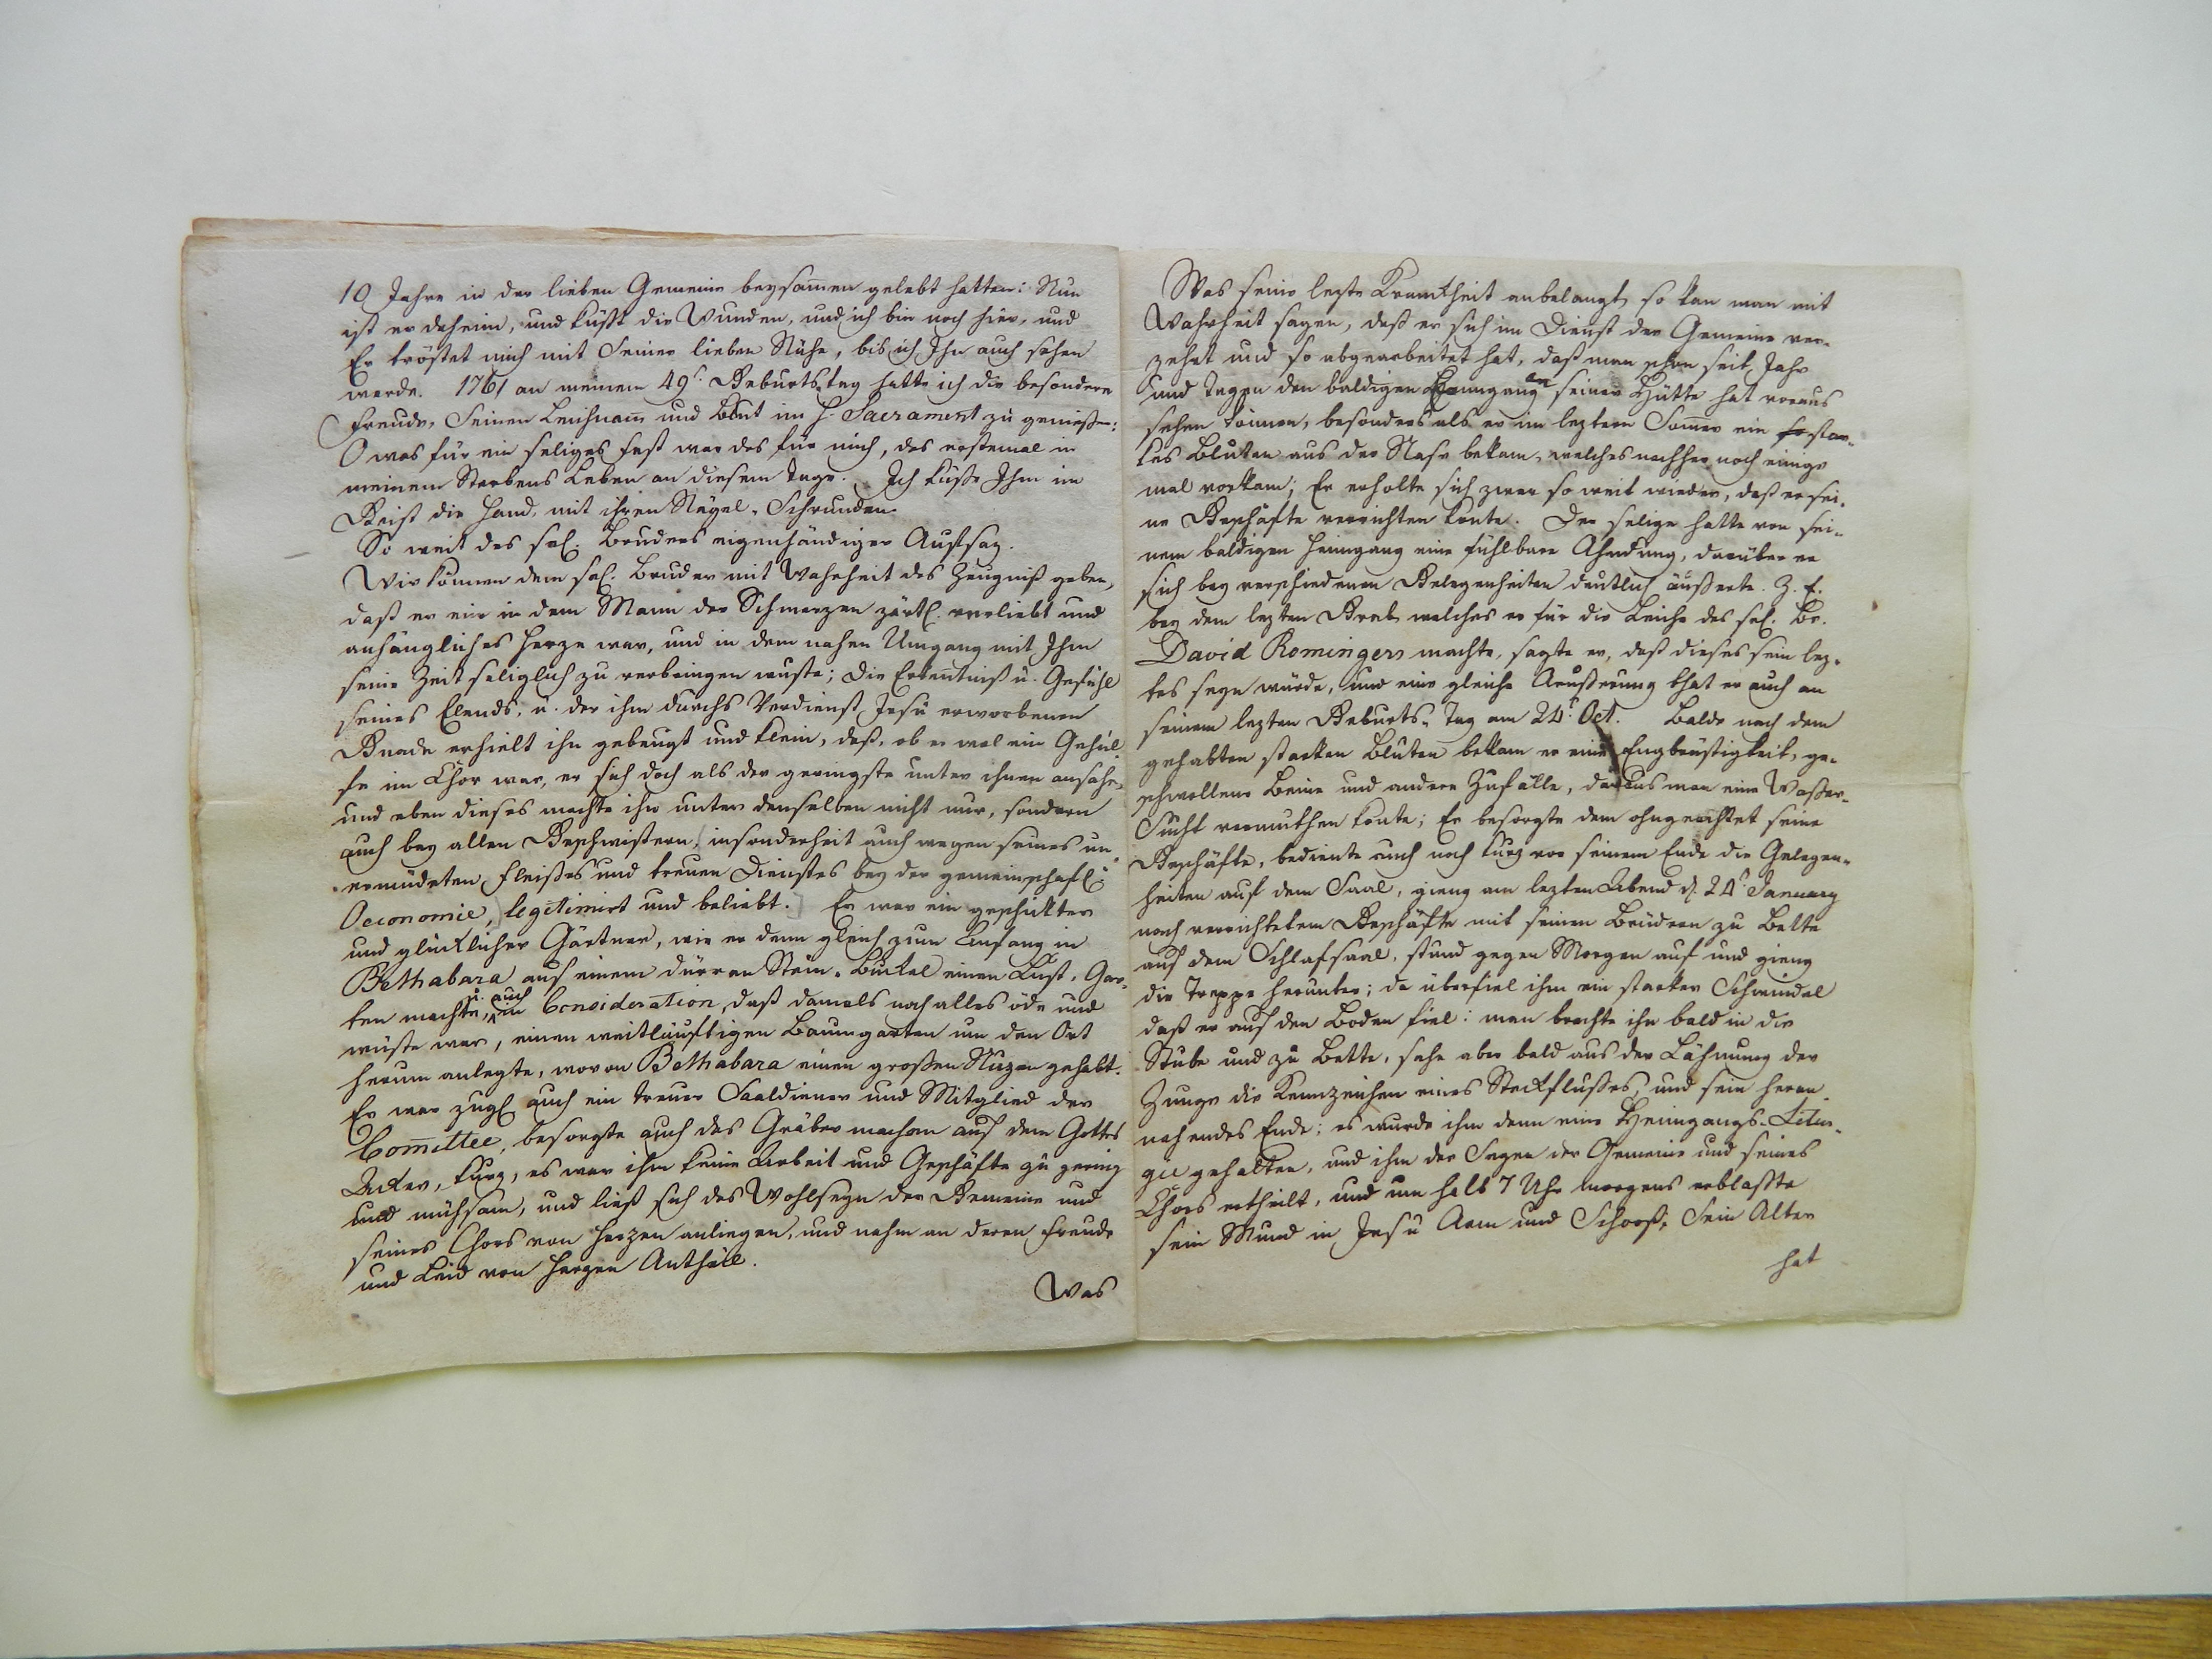 10 Jahre in der lieben Gemeine beysam̅en gelebt hatten: Nun
ist er daheim, und küßt die Wunden, und ich bin noch hier, und
Er tröstet mich mit Seiner lieben Nähe, bis ich Ihn auch sehen
werde. 1761 an meinem 49t. Geburtstag hatte ich die besondere
Freude, Seinen Leichnam̅ und Blut im H. Sacrament zu genießen:
O was für ein seliges Fest war das für mich, das erstemal in
meinem Sterbens Leben an diesem Tage. Ich küße Ihm im
Geist die Hand, mit ihren Nägel-Schrunden.
So weit des sel. Bruders eigenhändiger Aufsaz.
Wir können dem sel. Bruder mit Wahrheit das Zeugniß geben,
daß er ein in dem Mann der Schmerzen zärtl. verliebt und
anhängliches Herze war, und in dem nahen Umgang mit Ihm
seine Zeit seliglich zu verbringen wuste; Die Erkentniß u. Gefühl
seines Elends, u. der ihm durchs Verdienst Jesu erworbenen
Gnade erhielt ihn gebeugt und klein, daß, ob er wol ein Gehül
fe im Chor war, er sich doch als der geringste unter ihnen ansahe,
und eben dieses machte ihn unter denselben nicht nur, sondern
auch bey allen Geschwistern, (insonderheit auch wegen seines un-
ermüdeten Fleißes und treuen Dienstes bey der gemeinschaftl.
Oeconomie,) legitimirt und beliebt. Er war ein geschikter
und glüklicher Gärtner, wie er dann gleich zum Anfang in
Bethabara auf einem dürren Stein-Buckel einen Lust-Gar-
ten machte, u. auch in Consideration, daß damals noch alles öde und
wüste war, einen weitläuftigen Baumgarten um den Ort
herum anlegte, wovon Bethabara einen großen Nuzen gehabt.
Er war zugl. auch ein treuer Saaldiener und Mitglied der
Com̅ittee, besorgte auch das Gräber machen auf dem Gottes
Acker, kurz, es war ihm keine Arbeit und Geschäfte zu gering
und mühsam, und ließ sich das Wohlseyn der Gemeine und
seines Chors von Herzen anliegen, und nahm an deren Freude
und Leid von Herzen Antheil.
Was
Was seine lezte Krankheit anbelangt, so kan man mit
Wahrheit sagen, daß er sich im Dienst der Gemeine ver-
zehrt und so abgearbeitet hat, daß man schon seit Jahr
und Tagen den baldigen seiner Hütte hat voraus
sehen können, besonders als er im leztern Som̅er ein star-
kes Bluten aus der Nase bekam, welches nachher noch einige
mal vorkam; Er erholte sich zwar so weit wieder, daß er sei-
ne Geschäfte verrichten konte. Der selige hatte von sei-
nem baldigen Heimgang eine fühlbare Ahndung, darüber er
sich bey verschiedenen Gelegenheiten deutlich äußerte. Z. E.
bey dem lezten Grab, welches er für die Leiche des sel. Br.
David Romingers machte, sagte er, daß dieses sein lez-
tes seyn würde, und eine gleiche Aeußerung that er auch an
seinem lezten Geburts-Tag am 24t. Oct. Balde nach dem
gehabten starken Bluten bekam er eine Engbrüstigkeit, ge-
schwollene Beine und andere Zufälle, daraus man eine Waßer-
Sucht vermuthen konte; Er besorgte dem ohngeachtet seine
Geschäfte, bediente auch noch kurz vor seinem Ende die Gelegen-
heiten auf dem Saal, gieng am lezten Abend d. 24t. January
nach verrichtetem Geschäfte mit seinen Brüdern zu Bette
auf dem Schlafsaal, stund gegen Morgen auf und gieng
die Treppe herunter; da überfiel ihn ein starker Schwindel
daß er auf den Boden fiel: man brachte ihn bald in die
Stube und zu Bette, sahe aber bald aus der Lähmung der
Zunge die Kennzeichen eines Steckflußes, und sein heran-
nahendes Ende; es wurde ihm denn eine Heimgangs-Litur-
gie gehalten, und ihm der Segen der Gemeine und seines
Chors ertheilt, und um halb 7 Uhr morgens erblaßte
sein Mund in Jesu Arm und Schooß. Sein Alter
hat